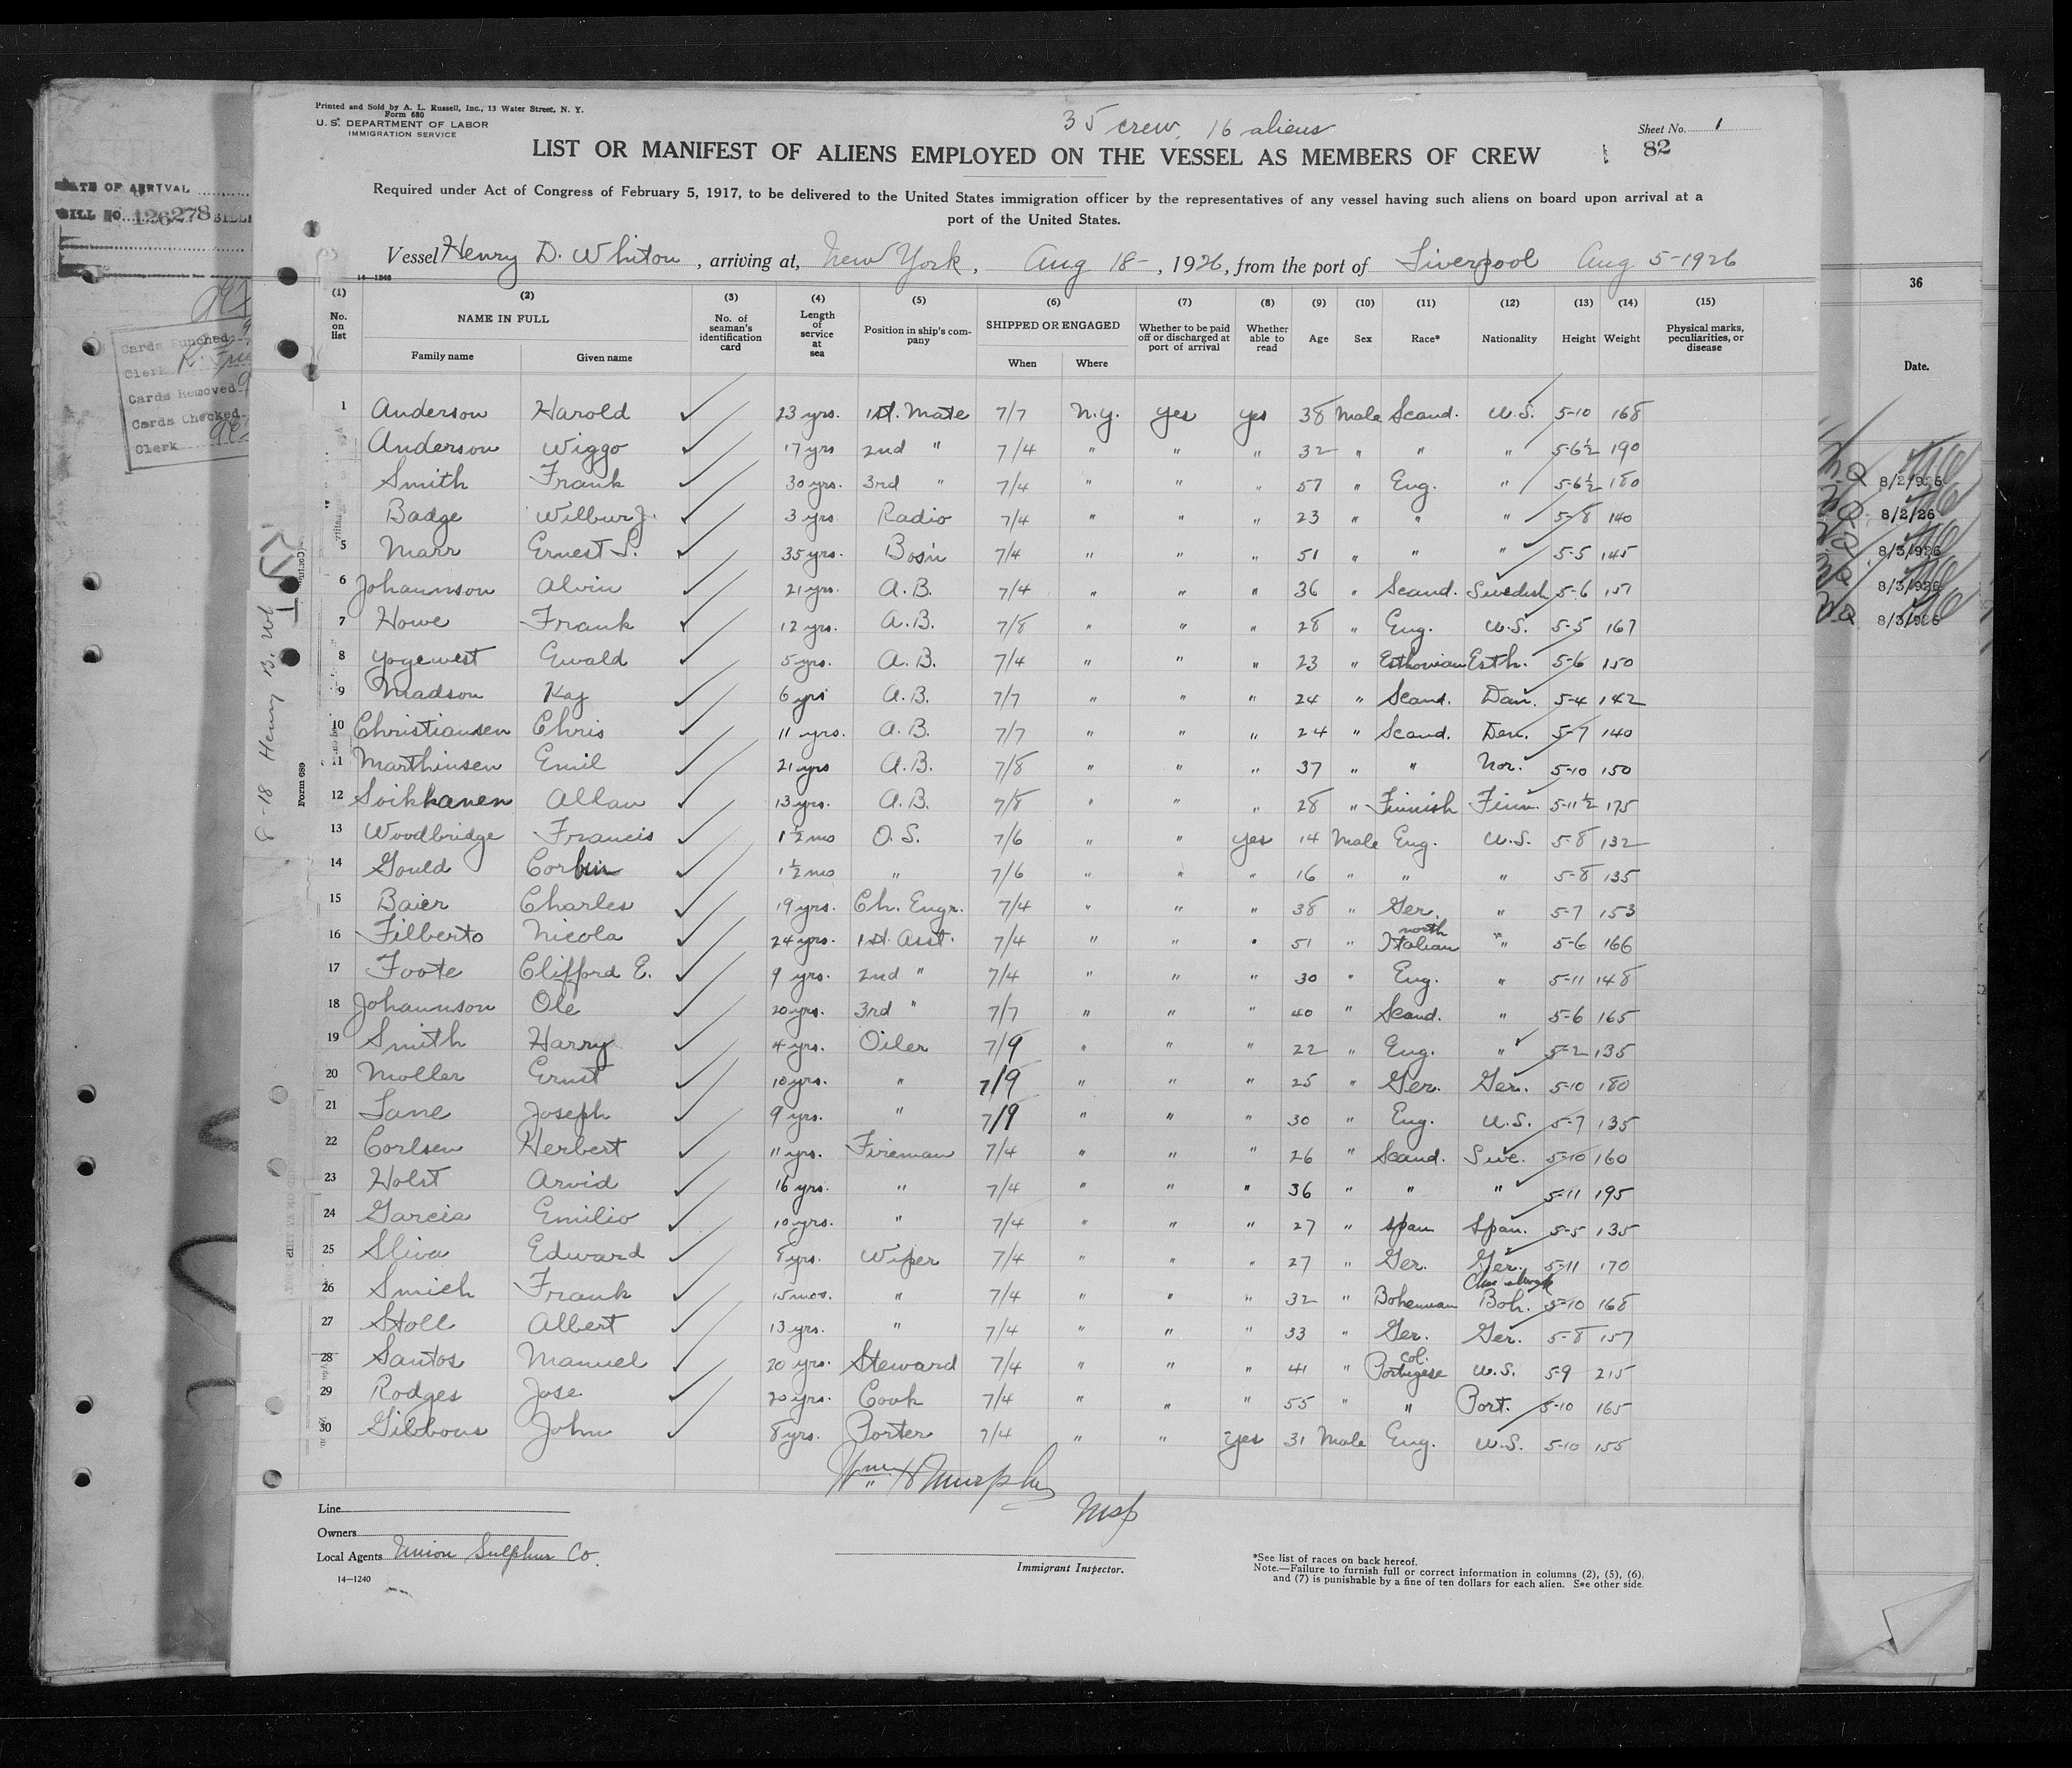 Printed and Sold by A. L. Russell, Inc., 13 Water Street, N. Y.
Form 680
U. S. DEPARTMENT OF LABOR
IMMIGRATION SERVICE
35 crew, 16 aliens
Sheet No. 1
82
LIST OR MANIFEST OF ALIENS EMPLOYED ON THE VESSEL AS MEMBERS OF CREW
Required under Act of Congress of February 5, 1917, to be delivered to the United States immigration officer by the representatives of any vessel having such aliens on board upon arrival at a
port of the United States.
Vessel Henry D. Whiton, arriving at, New York, Aug 18-, 1926, from the port of Liverpool Aug 5-1926
14-1240
(1) (2) (3) (4) (5) (6) (7) (8) (9) (10) (11) (12) (13) (14) (15)
No. on list NAME IN FULL Family name Given name No. of seaman's identification card Length of service at sea Position in ship's company SHIPPED OR ENGAGED When Where Whether to be paid off or discharged at port of arrival Whether able to read Age Sex Race* Nationality Height Weight Physical marks, peculiarities, or disease
1 Anderson Harold ✓ 23 yrs. 1st. Mate 7/7 N.Y. yes yes 38 Male Scand. U.S. 5-10 168
Anderson Wiggo ✓ 17 yrs 2nd " 7/4 " " " 32 " " " 5-6½ 190
Smith Frank ✓ 30 yrs. 3rd " 7/4 " " " 57 " Eng. " 5-6½ 180
Badge Wilbur J. ✓ 3 yrs Radio 7/4 " " " 23 " " " 5-8 140
5 Marr Ernest S. ✓ 35 yrs. Bos'n 7/4 " " " 51 " " " 5-5 145
6 Johannson Alvin ✓ 21 yrs. A.B. 7/4 " " " 36 " Scand. Swedish 5-6 157
7 Howe Frank ✓ 12 yrs. A.B. 7/8 " " " 28 " Eng. U.S. 5-5 167
8 Yogewest Ewald ✓ 5 yrs. A.B. 7/4 " " " 23 " Esthonian Esth. 5-6 150
9 Madson Kaj ✓ 6 yrs A.B. 7/7 " " " 24 " Scand. Dan. 5-4 142
10 Christiansen Chris ✓ 11 yrs. A.B. 7/7 " " " 24 " Scand. Den. 5-7 140
11 Marthinsen Emil ✓ 21 yrs A.B. 7/8 " " " 37 " " Nor. 5-10 150
12 Soikkanen Allan ✓ 13 yrs. A.B. 7/8 " " " 28 " Finnish Finn. 5-11½ 175
13 Woodbridge Francis ✓ 1½ mo O.S. 7/6 " " yes 14 Male Eng. U.S. 5-8 132
14 Gould Corbin ✓ 1½ mo " 7/6 " " " 16 " " " 5-8 135
15 Baier Charles ✓ 19 yrs. Ch. Engr. 7/4 " " " 38 " Ger. " 5-7 153
16 Filberto Nicola ✓ 24 yrs. 1st. Asst. 7/4 " " " 51 " north Italian " 5-6 166
17 Foote Clifford E. ✓ 9 yrs. 2nd " 7/4 " " " 30 " Eng. " 5-11 148
18 Johannson Ole ✓ 20 yrs. 3rd " 7/7 " " " 40 " Scand. " 5-6 165
19 Smith Harry ✓ 4 yrs. Oiler 7/9 " " " 22 " Eng. " 5-2 135
20 Moller Ernst ✓ 10 yrs. " 7/9 " " " 25 " Ger. Ger. 5-10 180
21 Lane Joseph ✓ 9 yrs. " 7/9 " " " 30 " Eng. U.S. 5-7 135
22 Corlsen Herbert ✓ 11 yrs. Fireman 7/4 " " " 26 " Scand. Swe. 5-10 160
23 Holst Arvid ✓ 16 yrs. " 7/4 " " " 36 " " " 5-11 195
24 Garcia Emilio ✓ 10 yrs. " 7/4 " " " 27 " Span Span. 5-5 135
25 Sliva Edward ✓ 8 yrs. Wiper 7/4 " " " 27 " Ger. Ger. 5-11 170
26 Smich Frank ✓ 15 mos. " 7/4 " " " 32 " Bohemian Boh. 5-10 168
27 Stoll Albert ✓ 13 yrs. " 7/4 " " " 33 " Ger. Ger. 5-8 157
28 Santos Manuel ✓ 20 yrs. Steward 7/4 " " " 41 " col. Portugese U.S. 5-9 215
29 Rodges Jose ✓ 20 yrs. Cook 7/4 " " " 55 " " Port. 5-10 165
30 Gibbons John ✓ 8 yrs. Porter 7/4 " " yes 31 Male Eng. U.S. 5-10 155
Wm H Murphy
Line
Owners
Local Agents Union Sulphur Co.
14-1240
Immigrant Inspector.
*See list of races on back hereof.
Note.—Failure to furnish full or correct information in columns (2), (5), (6),
and (7) is punishable by a fine of ten dollars for each alien. See other side.
DATE OF ARRIVAL
BILL NO. 126278
Cards Punched
Clerk
Cards Removed
Cards Checked
Clerk
Form 689
8-18 Henry D. Wh
36
Date.
8/2/926
8/2/26
8/3/926
8/3/926
8/3/926